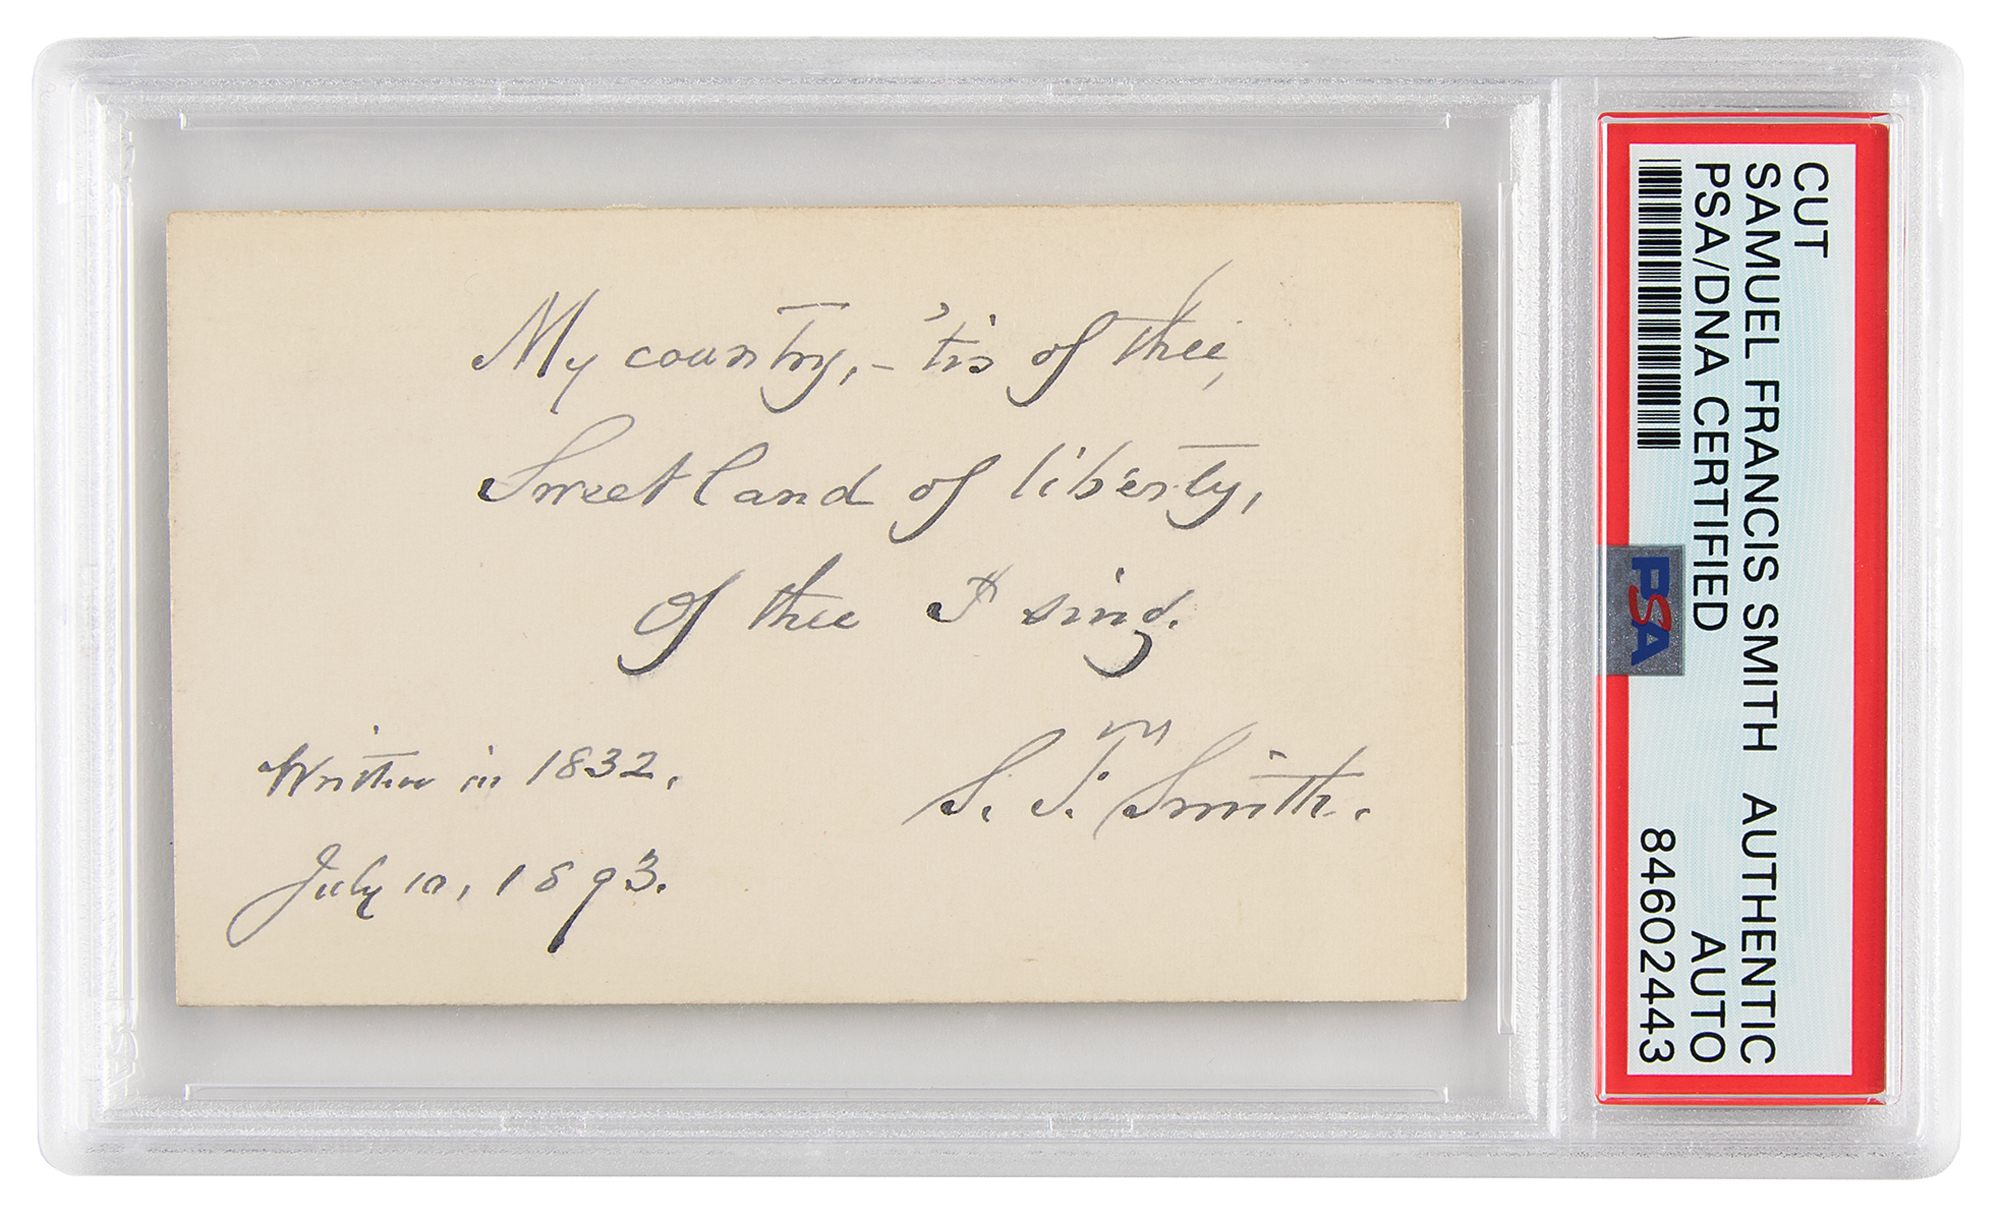 My country, – 'tis of thee,
Sweet land of liberty,
Of thee I sing.
S. F. Smith.
Written in 1832.
July 10, 1893.
CUT
SAMUEL FRANCIS SMITH AUTHENTIC
PSA/DNA CERTIFIED AUTO
84602443
PSA